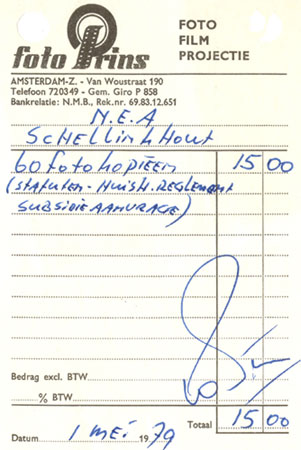 foto Prins
FOTO
FILM
PROJECTIE
AMSTERDAM-Z. - Van Woustraat 190
Telefoon 720349 - Gem. Giro P 858
Bankrelatie: N.M.B., Rek.nr. 69.83.12.651
N.E.A
SCHELLINKHOUT
60 fotokopieen 15 00
(STATUTEN - HUISH. REGLEMENT
SUBSIDIE AANVRAGE)
Bedrag excl. BTW
% BTW
Totaal 15 00
Datum 1 mei 1979